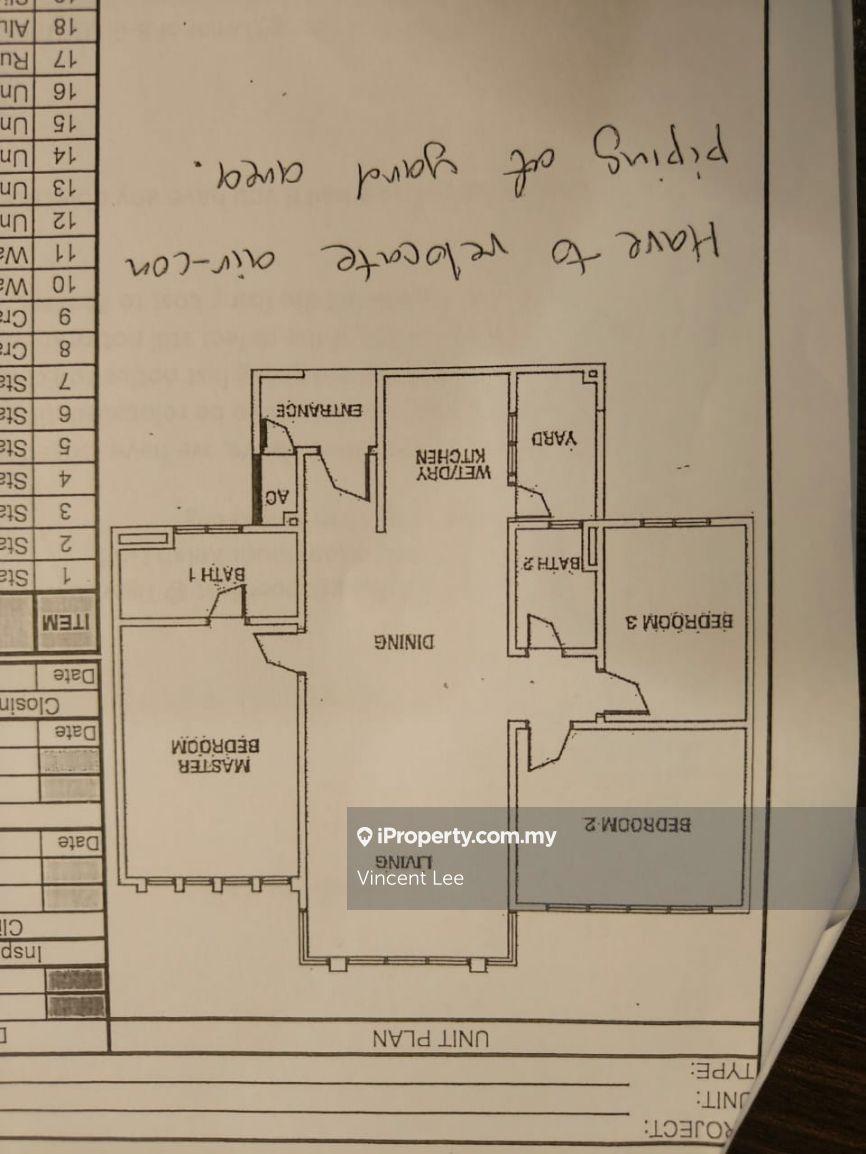 PROJECT:
UNIT:
TYPE:
UNIT PLAN
LIVING
BEDROOM 2
MASTER
BEDROOM
DINING
BEDROOM 3
BATH 2
BATH 1
AC
YARD
WET/DRY
KITCHEN
ENTRANCE
Have to relocate air-con
piping at yard area.
Date
Date
Date
ITEM
1 Sta
2 Sta
3 Sta
4 Sta
5 Sta
6 Sta
7 Sta
8 Cra
9 Cra
10 Wa
11 Wa
12 Un
13 Un
14 Un
15 Un
16 Un
17 Ru
18 Alu
iProperty.com.my
Vincent Lee